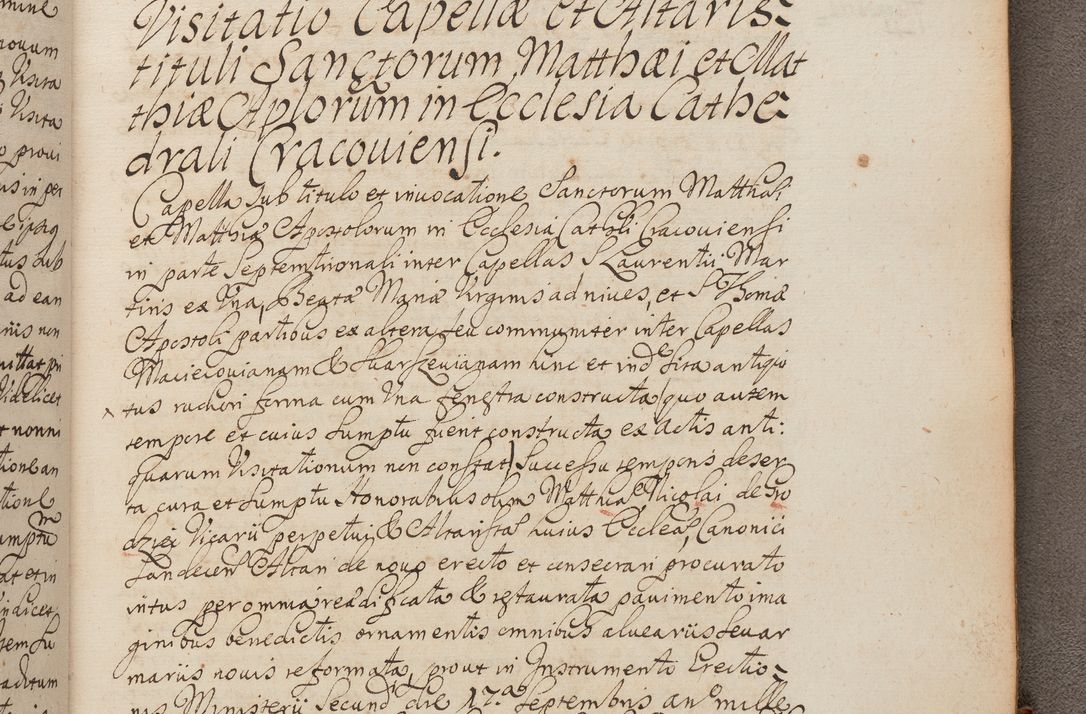 Visitatio Capellæ et Altaris
tituli Sanctorum Matthæi et Mat
thiæ Aplorum in Ecclesia Cathe
drali Cracouiensi.
Capella sub titulo et inuocatione Sanctorum Matthæi
et Matthiæ Apostolorum in Ecclesia Cathli Cracouiensi
in parte Septemtrionali inter Capellas S Laurentii Mar
tiris ex Vna, Beatæ Mariæ Virginis ad niues, et S. Thomæ
Apostoli partibus ex altera, seu communiter inter Capellas
Macieiouianam & Skarszeuianam hinc et inde sita antiqui
tus ruditori forma cum Vna fenestra constructa (quo autem
tempore et cuius sumptu fuerit constructa ex Actis anti:
quarum Visitationum non constat) Successu temporis deser
ta cura et sumptu Honorabilis olim Matthiæ Nicolai de Gro
dziec Vicarii perpetui & Altaristæ huius Ecclesiæ, Canonici
Sandecen Altari de nouo erecto et consecrari procurato
intus per omnia reædificata & restaurata pauimento ima
ginibus benedictis ornamentis omnibus aluearüs seu ar
marüs nouis reformata, prout in Instrumento Erectio
nis Ministerii Secund die 17a Septembris ano mille
mine
nouum
Visita
Visita
proui
us in per
tus sub
ad ean
nis non
mittat pri
Videlicet
nonni
tione an
tione
umptu
at et in
indicet
tem su